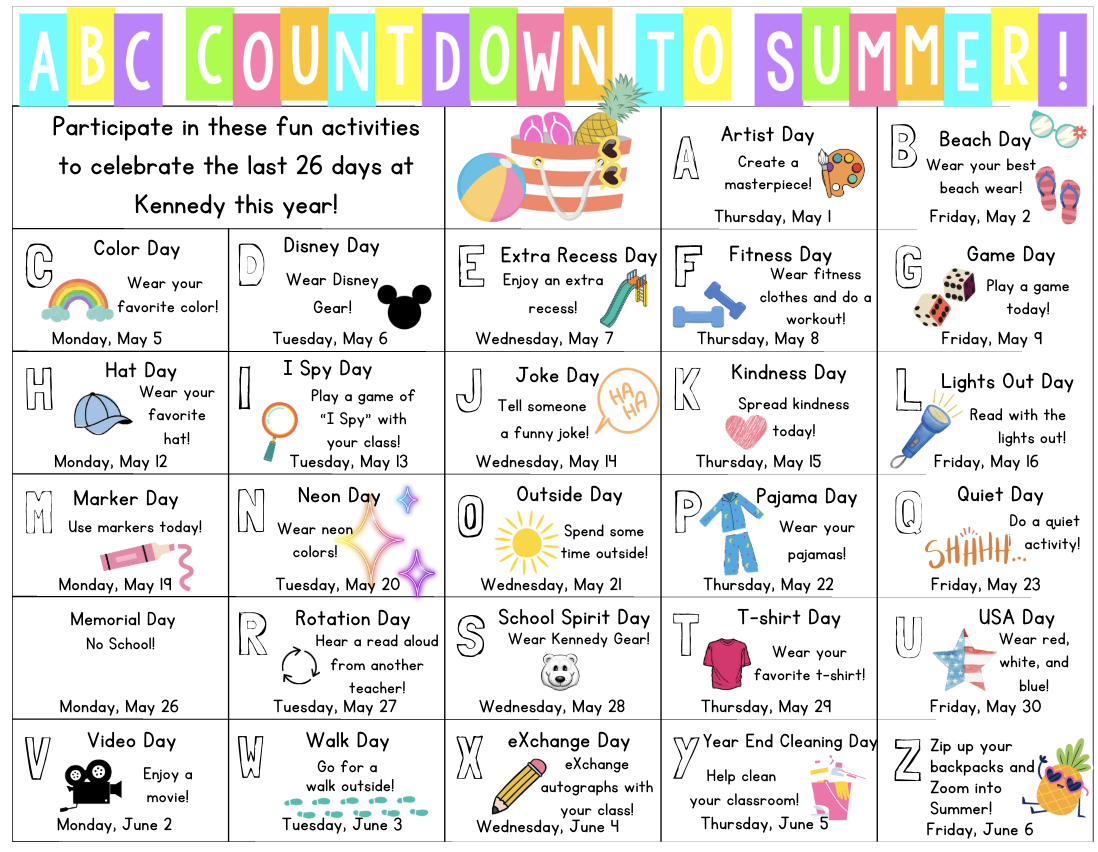 ABC COUNTDOWN TO SUMMER!
Participate in these fun activities
to celebrate the last 26 days at
Kennedy this year!
A
Artist Day
Create a
masterpiece!
Thursday, May 1
B
Beach Day
Wear your best
beach wear!
Friday, May 2
C
Color Day
Wear your
favorite color!
Monday, May 5
D
Disney Day
Wear Disney
Gear!
Tuesday, May 6
E
Extra Recess Day
Enjoy an extra
recess!
Wednesday, May 7
F
Fitness Day
Wear fitness
clothes and do a
workout!
Thursday, May 8
G
Game Day
Play a game
today!
Friday, May 9
H
Hat Day
Wear your
favorite
hat!
Monday, May 12
I
I Spy Day
Play a game of
"I Spy" with
your class!
Tuesday, May 13
J
Joke Day
Tell someone
a funny joke!
HA
HA
Wednesday, May 14
K
Kindness Day
Spread kindness
today!
Thursday, May 15
L
Lights Out Day
Read with the
lights out!
Friday, May 16
M
Marker Day
Use markers today!
Monday, May 19
N
Neon Day
Wear neon
colors!
Tuesday, May 20
O
Outside Day
Spend some
time outside!
Wednesday, May 21
P
Pajama Day
Wear your
pajamas!
Thursday, May 22
Q
Quiet Day
Do a quiet
activity!
SHHHH...
Friday, May 23
Memorial Day
No School!
Monday, May 26
R
Rotation Day
Hear a read aloud
from another
teacher!
Tuesday, May 27
S
School Spirit Day
Wear Kennedy Gear!
Wednesday, May 28
T
T-shirt Day
Wear your
favorite t-shirt!
Thursday, May 29
U
USA Day
Wear red,
white, and
blue!
Friday, May 30
V
Video Day
Enjoy a
movie!
Monday, June 2
W
Walk Day
Go for a
walk outside!
Tuesday, June 3
X
eXchange Day
eXchange
autographs with
your class!
Wednesday, June 4
Y
Year End Cleaning Day
Help clean
your classroom!
Thursday, June 5
Z
Zip up your
backpacks and
Zoom into
Summer!
Friday, June 6